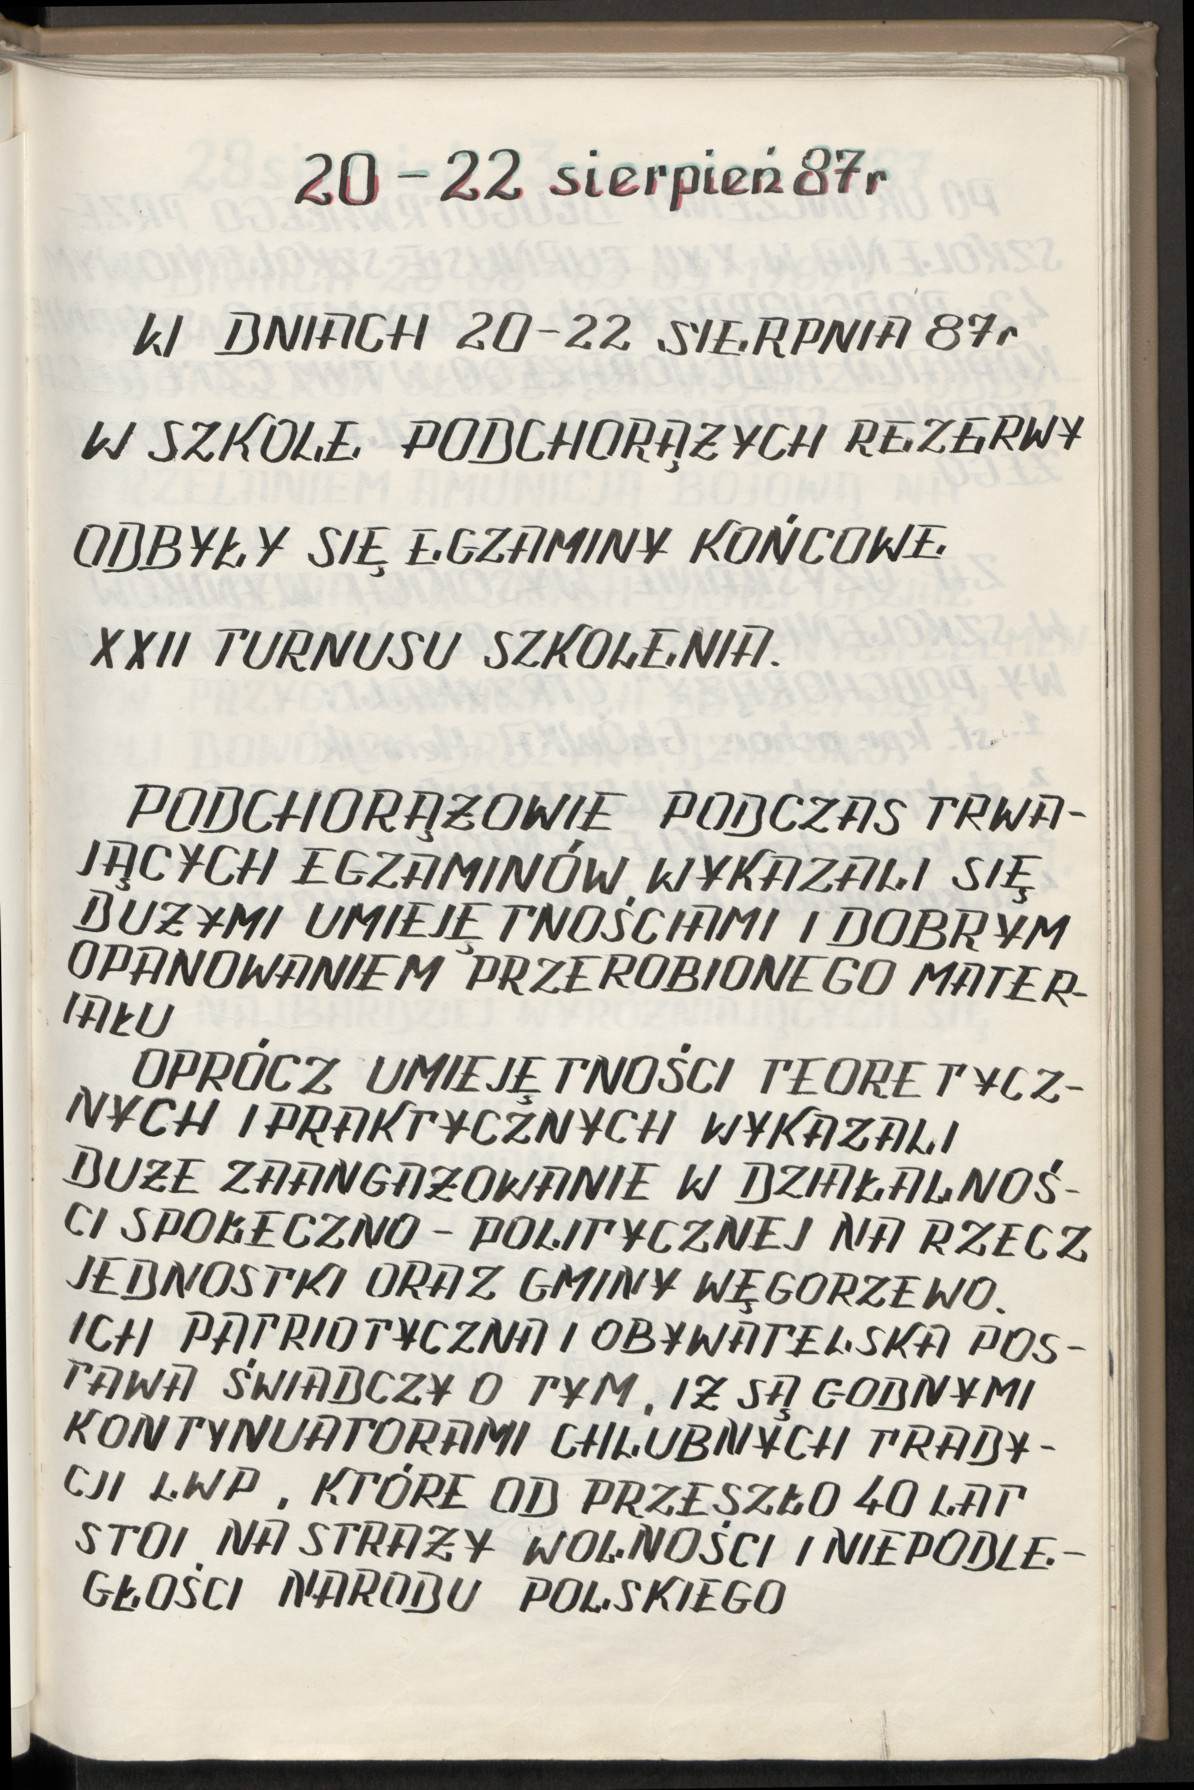 20-22 sierpień 87r
W DNIACH 20-22 SIERPNIA 87r
W SZKOLE PODCHORĄŻYCH REZERWY
ODBYŁY SIĘ EGZAMINY KOŃCOWE
XXII TURNUSU SZKOLENIA.
PODCHORĄŻOWIE PODCZAS TRWA-
JĄCYCH EGZAMINÓW WYKAZALI SIĘ
DUŻYMI UMIEJĘTNOŚCIAMI I DOBRYM
OPANOWANIEM PRZEROBIONEGO MATER-
IAŁU
OPRÓCZ UMIEJĘTNOŚCI TEORETYCZ-
NYCH I PRAKTYCŻNYCH WYKAZALI
DUŻE ZAANGAŻOWANIE W DZIAŁALNOŚ-
CI SPOŁECZNO - POLITYCZNEJ NA RZECZ
JEDNOSTKI ORAZ GMINY WĘGORZEWO.
ICH PATRIOTYCZNA I OBYWATELSKA POS-
TAWA ŚWIADCZY O TYM, IŻ SĄ GODNYMI
KONTYNUATORAMI CHLUBNYCH TRADY-
CJI LWP, KTÓRE OD PRZESZŁO 40 LAT
STOI NA STRAŻY WOLNOŚCI I NIEPODLE-
GŁOŚCI NARODU POLSKIEGO